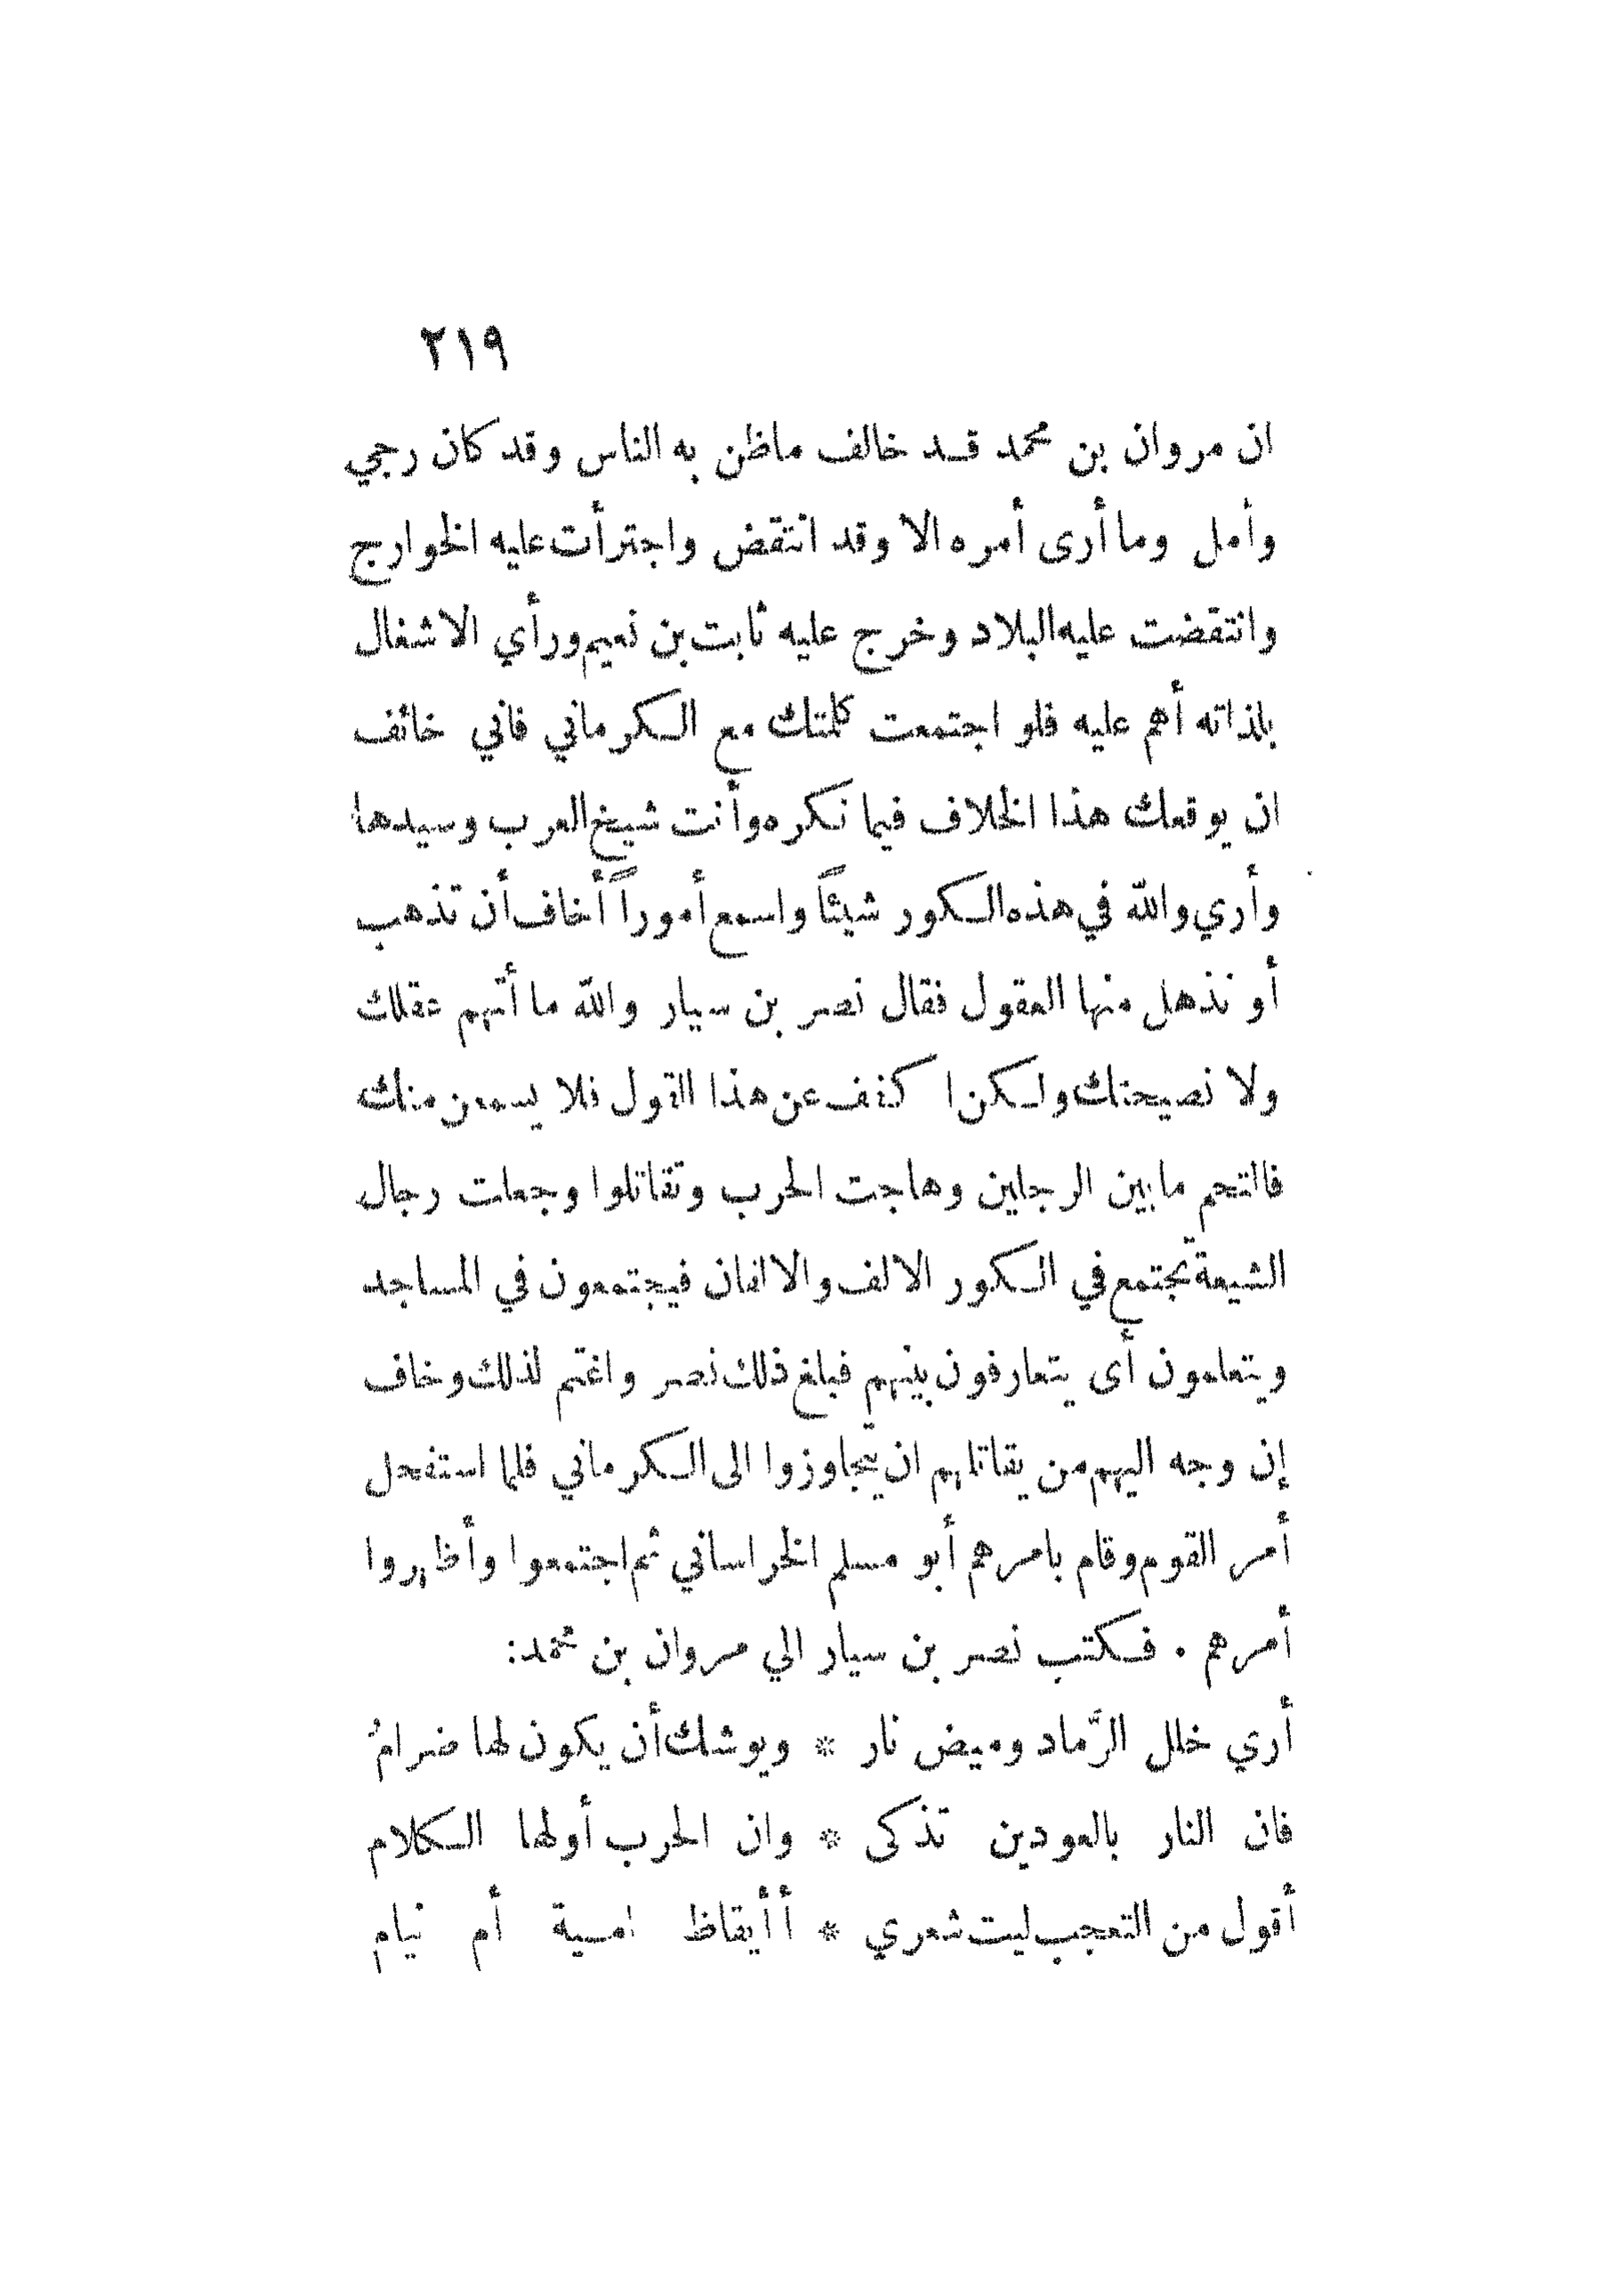 ٢١٩
ان مروان بن محمد قد خالف ماظن به الناس وقد كان رجي
وأمل وما أرى أمره الا وقد انتقض واجترأت عليه الخوارج
وانتقضت عليه البلاد وخرج عليه ثابت بن نعيم ورأي الاشغال
بلذاته أهم عليه فلو اجتمعت كلمتك مع الكرماني فاني خائف
ان يوقعك هذا الخلاف فيما نكره وأنت شيخ العرب وسيدها
وأري والله في هذه الكور شيئاً واسمع أموراً أخاف أن تذهب
أو نذهل منها العقول فقال نصر بن سيار والله ما أتهم عقلك
ولا نصيحتك ولكن ا كفف عن هذا القول فلا يسمعن منك
فالتحم مابين الرجلين وهاجت الحرب وتقاتلوا وجعلت رجال
الشيعة تجتمع في الكور الالف والالفان فيجتمعون في المساجد
ويتعلمون أى يتعارفون بينهم فبلغ ذلك نصر واغتم لذلك وخاف
إن وجه اليهم من يقاتلهم ان يتجاوزوا الى الكرماني فلما استفحل
أمر القوم وقام بامرهم أبو مسلم الخراساني ثم اجتمعوا وأظهروا
أمرهم . فكتب نصر بن سيار الي مروان بن محمد:
أري خلل الرَّماد وميض نار * ويوشك أن يكون لها ضرامُ
فان النار بالعودين تذكى * وان الحرب أولها الكلام
أقول من التعجب ليت شعري * أأيقاظ امية أم نيام